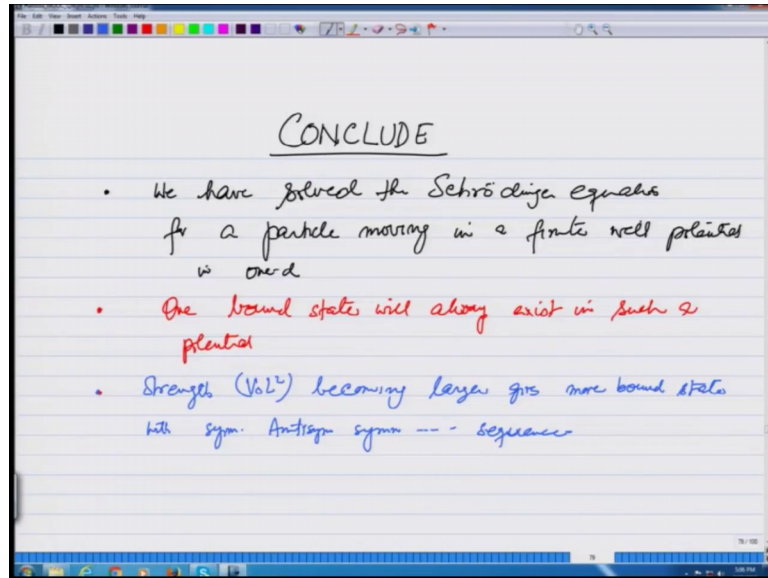 File Edit View Insert Actions Tools Help
B I
CONCLUDE
• We have solved the Schrödinger equation
for a particle moving in a finite well potential
in one-d
• One bound state will always exist in such a
potential
• Strength (V₀L²) becoming larger gives more bound states
with sym. Antisym symm --- sequence
78 / 100
78
5:06 PM